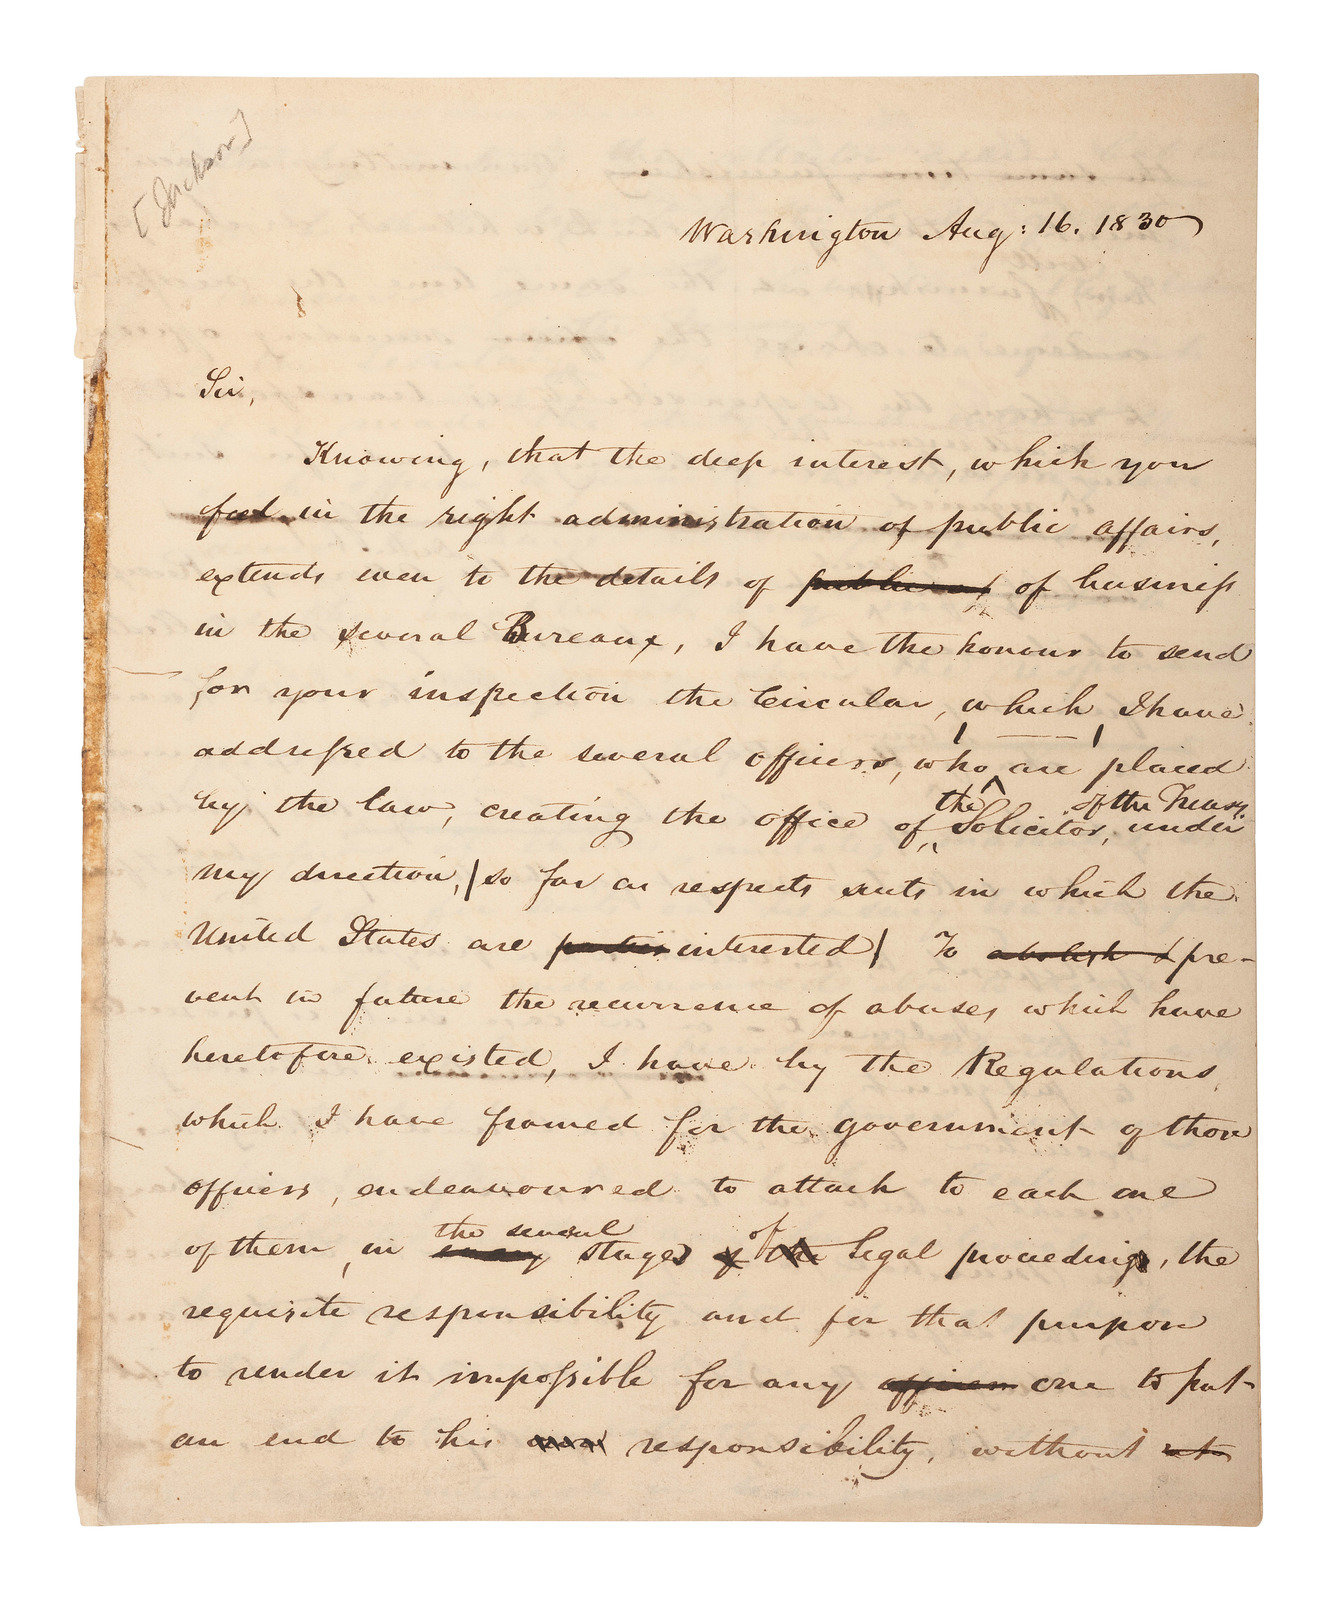 [Jackson]
Washington Aug: 16. 1830
Sir,
Knowing, that the deep interest, which you
feel in the right administration of public affairs,
extends even to the details of of business
in the several Bureaux, I have the honour to send
for your inspection the Circular, which I have
addressed to the several officers, who are placed
by the law, creating the office of the Solicitor of the Treasy, under
my direction, so far as respects suits in which the
United States are parties interested To abolish & pre-
vent in future the recurrence of abuses which have
heretofore existed, I have by the Regulations
which I have framed for the government of those
officers, endeavoured to attach to each one
of them, in every the several stages of the of legal proceedings, the
requisite responsibility and for that purpose
to render it impossible for any officer one to put
an end to his own responsibility, without